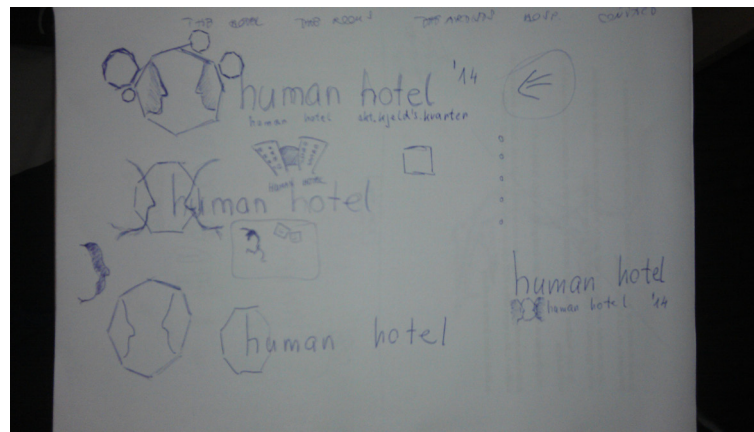 THE HOTEL THE ROOMS THE ARTISTS CONTACT
human hotel '14
human hotel skt. kjeld's kvarter
human hotel
human hotel
human hotel
human hotel '14
human hotel